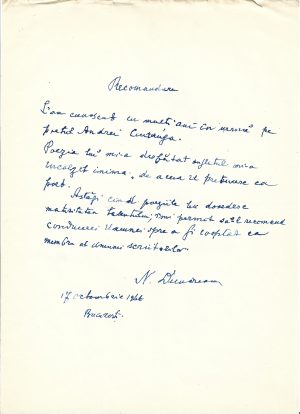 Recomandare
L-am cunoscut cu mulți ani în urmă pe
poetul Andrei Ciurunga.
Poezia lui mi-a desfătat sufletul mi-a
încălzit inima, de aceea îl prețuiesc ca
poet.
Astăzi cînd poeziile lui dovedesc
maturitatea talentului, îmi permit să-l recomand
conducerei Uniunei spre a fi cooptat ca
membru al Uniunei scriitorilor
N.
17 octombrie 1966
București.